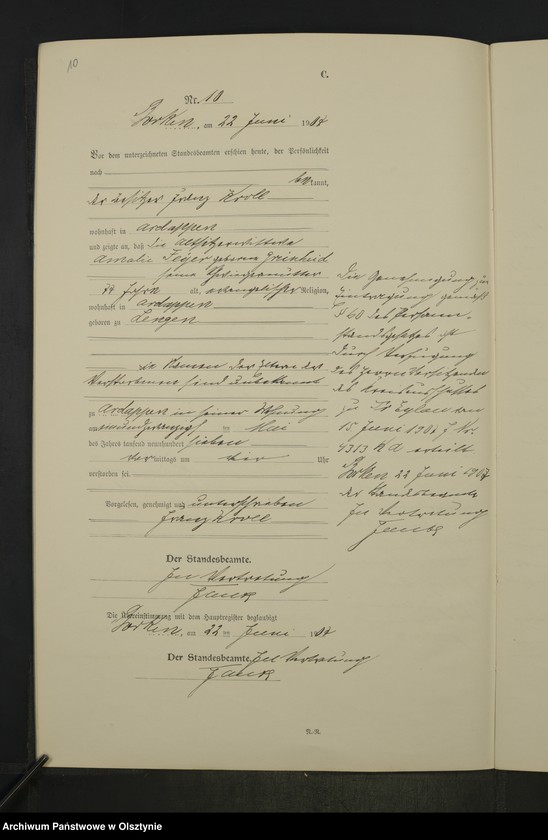 10
C.
Nr. 10
Borken, am 22 Juni 1907
Vor dem unterzeichneten Standesbeamten erschien heute, der Persönlichkeit
nach
bekannt,
der Besitzer Franz Kroll
wohnhaft in Ardappen
und zeigte an, daß die Altsitzerwittwe
Amalie geborene
seine
Jahre alt, evangelischer Religion,
wohnhaft in Ardappen
geboren zu Lengen
die Namen der Eltern der
Verstorbenen sind unbekannt
zu Ardappen in seiner Wohnung
am Mai
des Jahres tausend neunhundert sieben
vormittags um vier Uhr
verstorben sei.
Vorgelesen, genehmigt und unterschrieben
Franz Kroll
Der Standesbeamte.
In Vertretung
Die Übereinstimmung mit dem Hauptregister beglaubigt
Borken, am 22 ten Juni 1907
Der Standesbeamte. In Vertretung
Die Genehmigung zur
Eintragung gemäß
§ 60 des Personen-
standsgesetzes ist
durch Verfügung
des Herrn Vorsitzenden
des Kreisausschusses
zu Pr Eylau vom
15 Juni 1907 J Nr.
4313 K A erteilt
Borken 22 Juni 1907
der Standesbeamte
In Vertretung
N.-N.
Archiwum Państwowe w Olsztynie